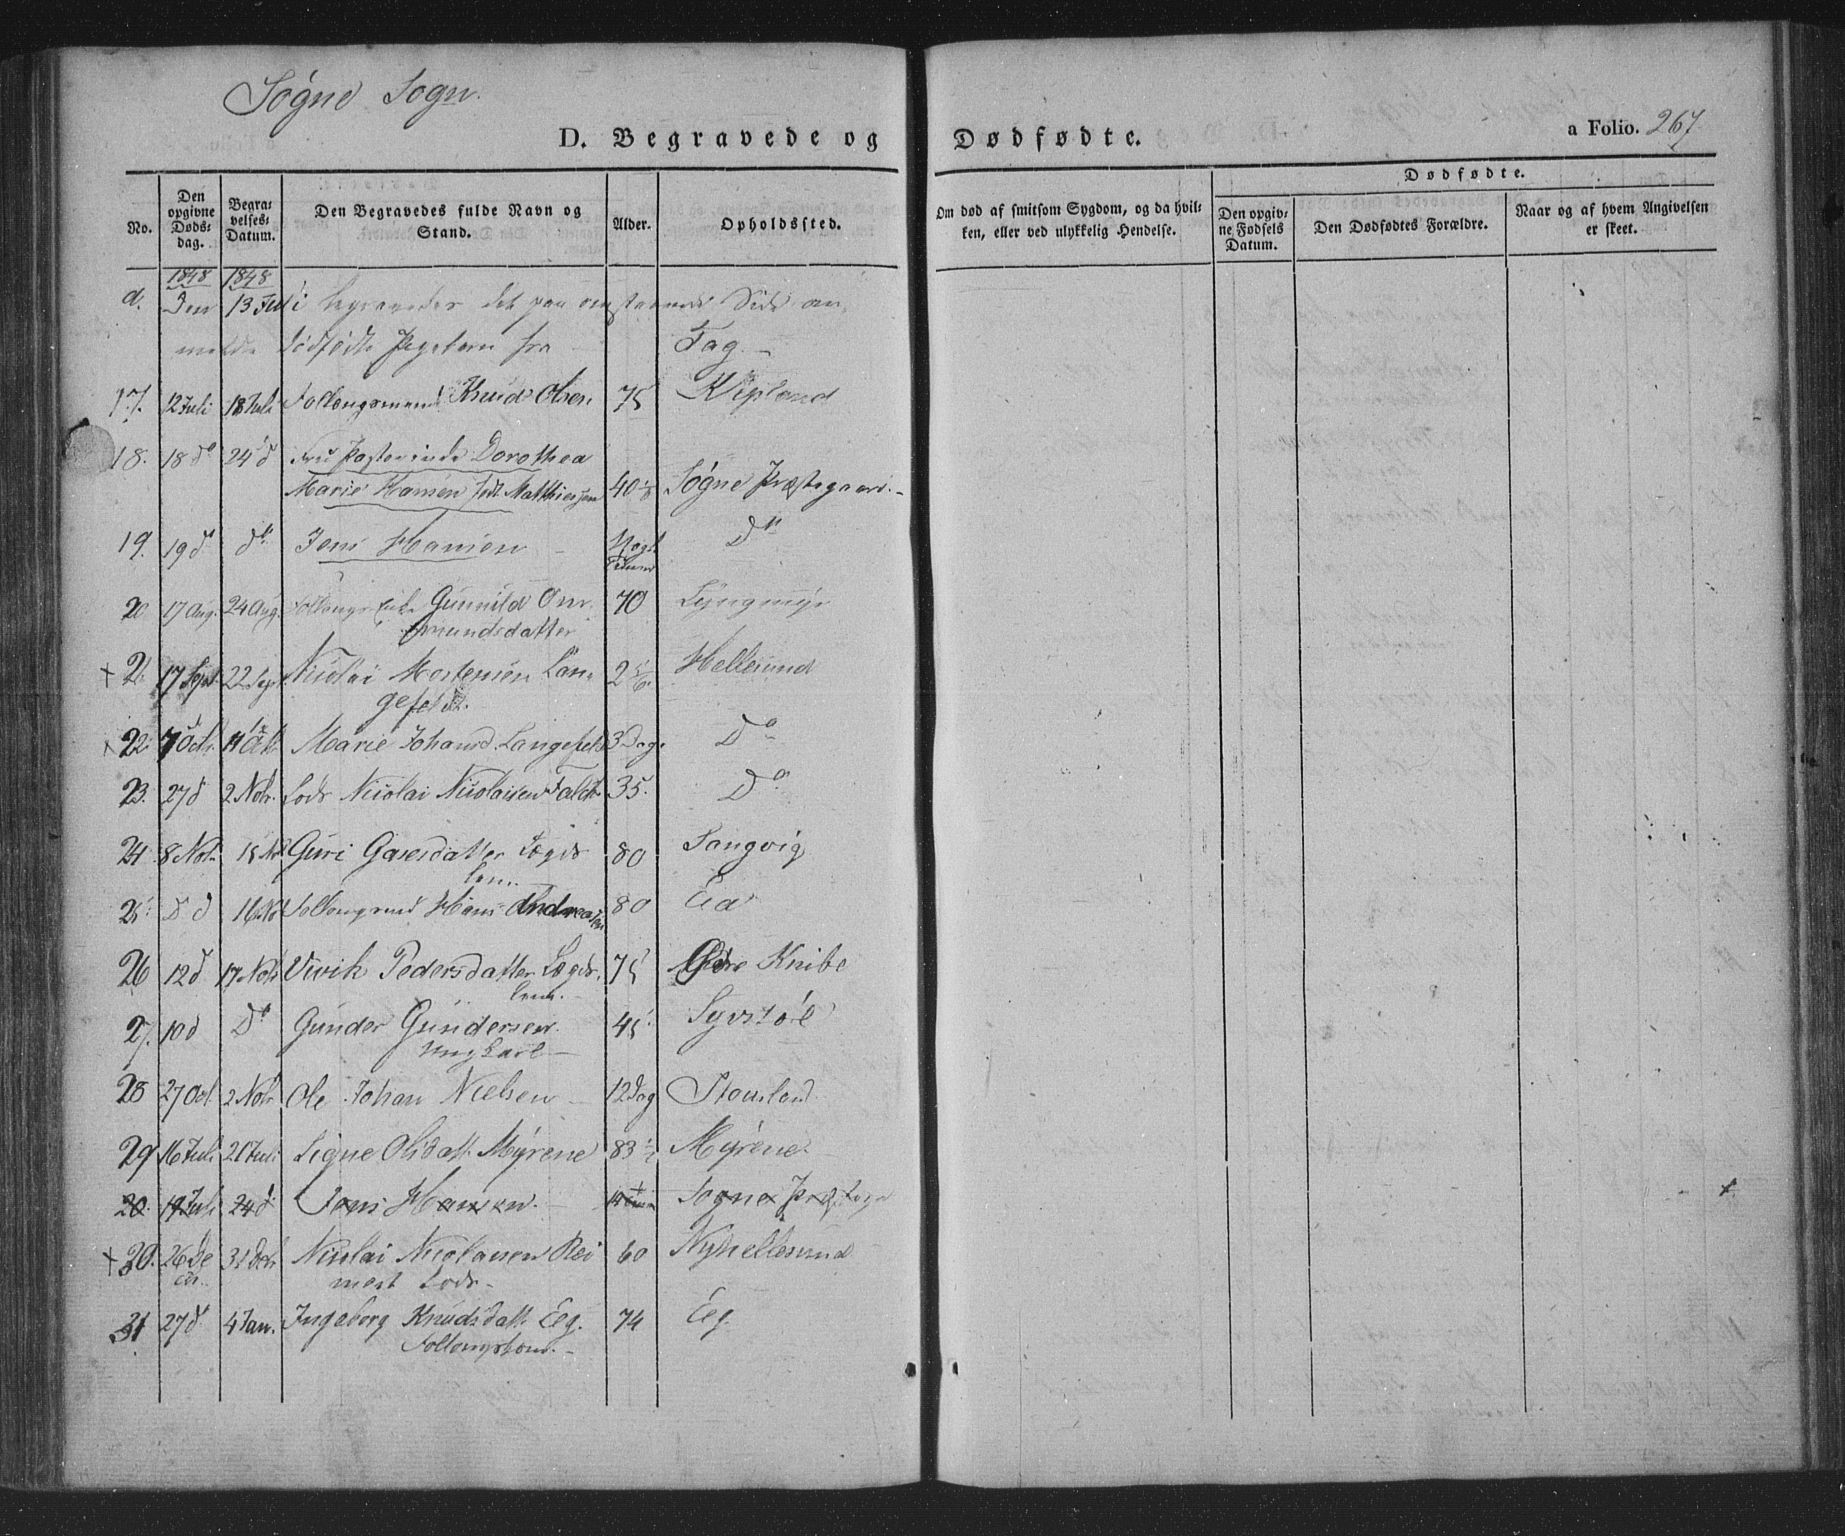 Søgne Sogn.
D. Begravede og Dødfødte.
a Folio. 267
No.
Den opgivne Døds-dag.
Begra-velses-Datum.
Den Begravedes fulde Navn og Stand.
Alder.
Opholdssted.
Om død af smitsom Sygdom, og da hvil-ken, eller ved ulykkelig Hendelse.
Dødfødte.
Den opgiv-ne Fødsels Datum.
Den Dødfødtes Forældre.
Naar og af hvem Angivelsen er skeet.
1848 1848
a. Den 13 begravedes det paa omstaaende Side an-
meldte dødfødte Pigebarn fra Tag
17. 12 Juli 18 Juli Follaugsmand Knud Olsen 75 Klepland
18. 18 d° 24 d Fru Pastorinde Dorothea
Marie Hansen født Matthiesen 40 Søgne Præstegaard
19. 19 d° d° Jens Hansen D°
20 17 Aug. 24 Aug. Gunnild Om-
mundsdatter 70 Lyngmyr
+ 21 17 Sept 22 Sept Nicolai Mortensen Lan-
gefeldt. 2 Hellesund
+ 22 7 Oct. 11 Oct. Marie Johansd. Langefeldt 3 Dage D°
23. 27 d 2 Novr. Lods Nicolai Nicolaisen 35. D°
24 8 Novr. 15 Nov Guri Gasesdatter Lægds-
lem. 80 Langvig
25 D d 16 Nov Hans Andreassen 80 Eg
26 12 d 17 Novr Vivik Pedersdatter Lægds-
lem. 75 Øvre Knibe
27. 10 d D° Gunder Gundersen
Ungkarl 45 Syvstøl
28 27 Oct 2 Novr Ole Johan Nielsen 12 Dag Stousland
29 16 Juli 21 Juli Signe Olsdatt. Myrene 83 Myrene
30. 19 Juli 24 d Jens Hansen. Søgne Præsteg
+ 30. 26 De
cr. 31 Decr Nicolai Nicolaisen Rei
mert Lods 60 Nyhellesund
31 27 d° 4 Jan. Ingeborg Knudsdatt. Eeg. 74 Eeg.